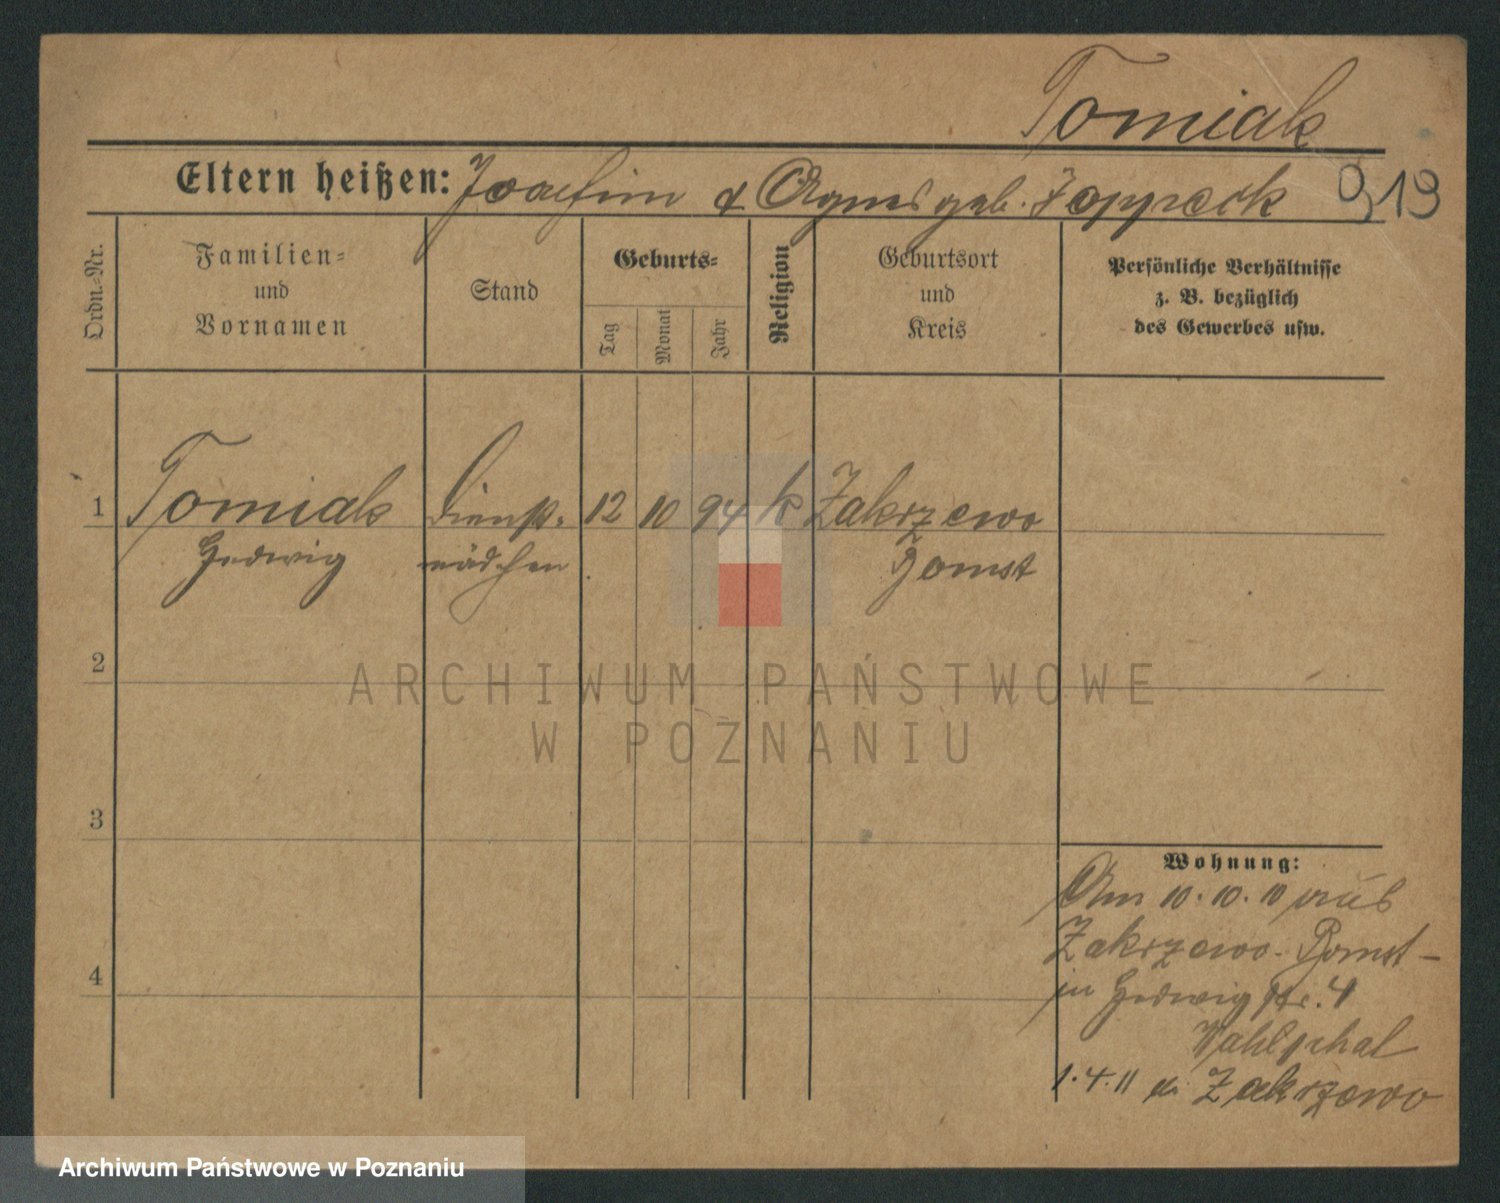 Tomiak
Eltern heißen: Joachim & Agnes geb. Zoppeck 919
Ordn.-Nr.
Familien-
und
Vornamen
Stand
Geburts-
Tag
Monat
Jahr
Religion
Geburtsort
und
Kreis
Persönliche Verhältnisse
z. B. bezüglich
des Gewerbes usw.
1 Tomiak Dienst- 12 10 94 k Zakrzewo
Hedwig mädchen Bomst
2
3
4
Wohnung:
Am 10.10.10 aus
Zakrzewo-Bomst-
in Hedwigstr. 4
1.4.11 Zakrzewo
ARCHIWUM PAŃSTWOWE
W POZNANIU
Archiwum Państwowe w Poznaniu